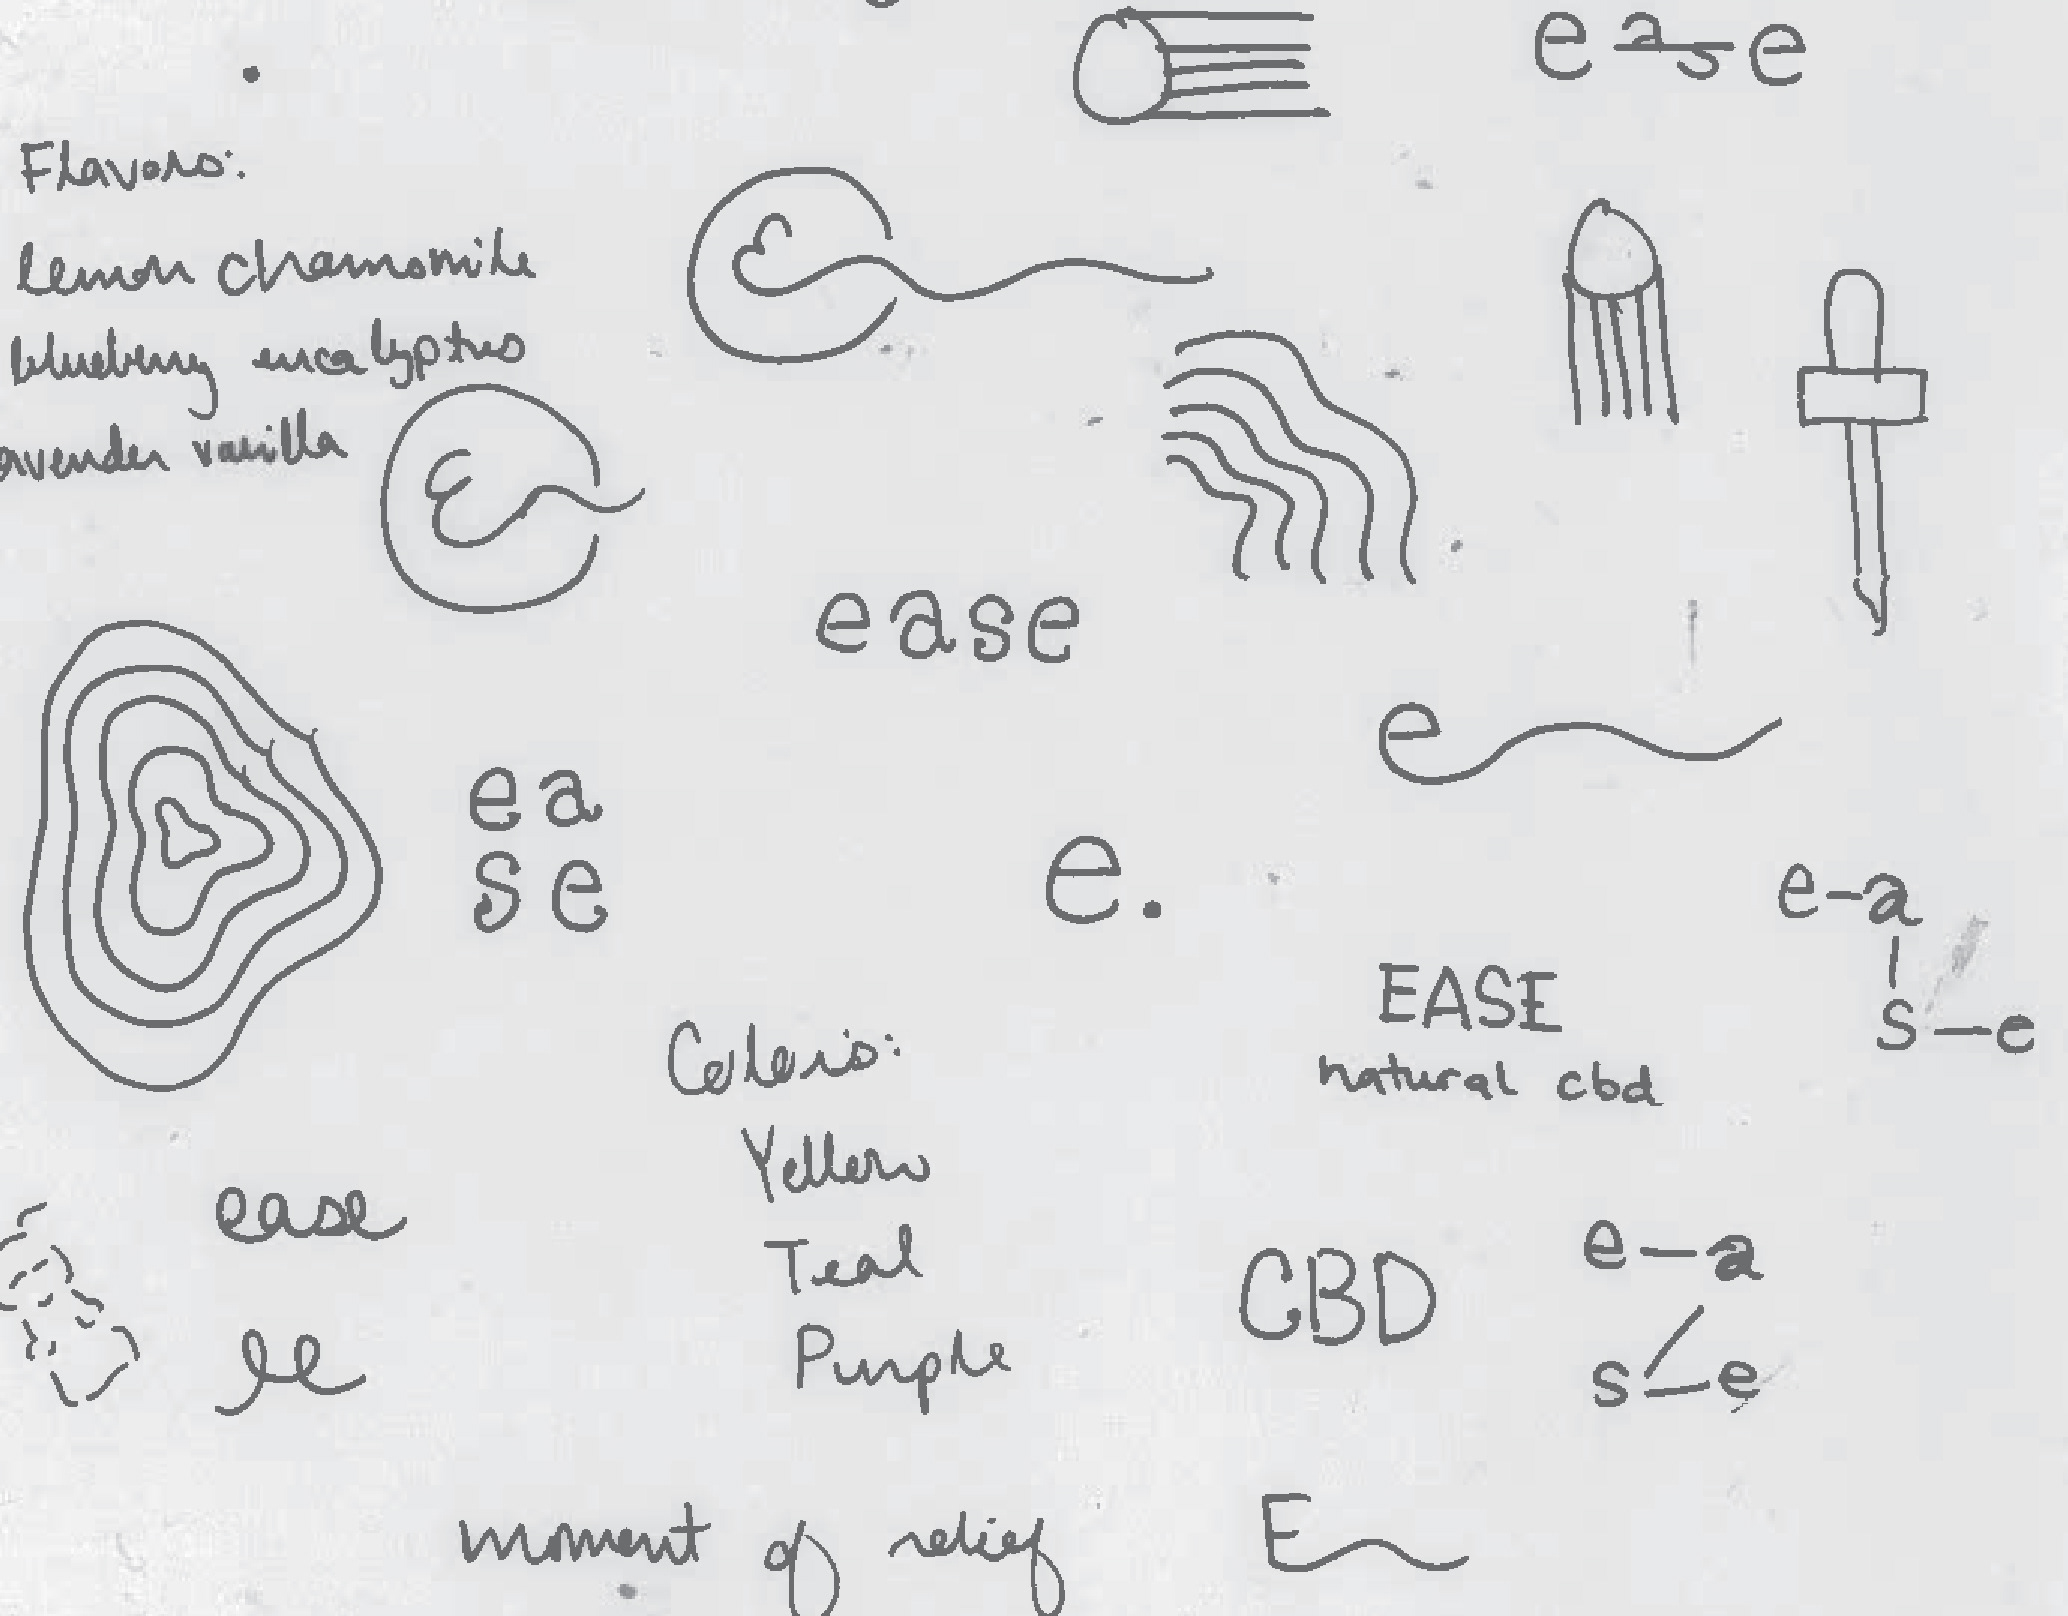 ease
Flavors:
lemon chamomile
blueberry eucalyptus
lavender vanilla
ease
e
ea
se
e.
e-a
s-e
EASE
natural cbd
Colors:
Yellow
Teal
Purple
ease
ee
CBD
e-a
s-e
moment of relief
E